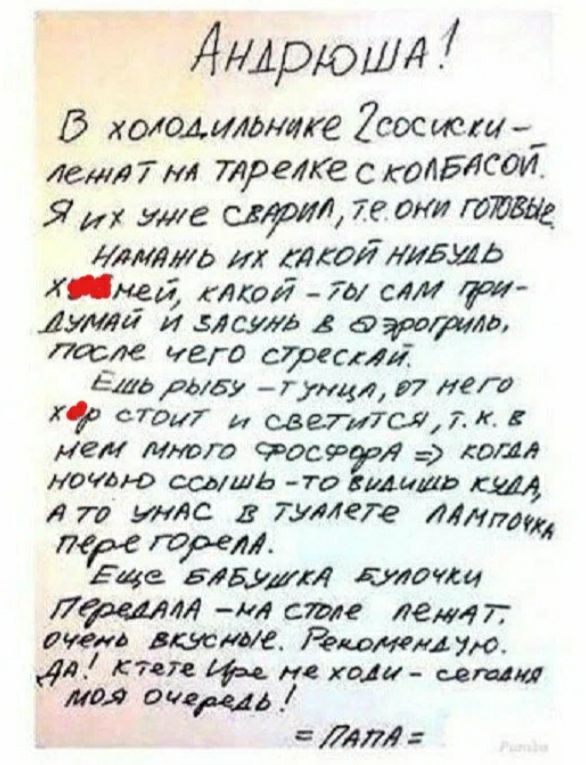 Андрюша!
В холодильнике 2 сосиски –
лежат на тарелке с колбасой.
Я их уже сварил, т.е. они готовые
Намажь их какой нибудь
х ней, какой – ты сам при-
думай и засунь в аэрогриль,
после чего стрескай.
Ешь рыбу – тунца, от него
х р стоит и светится, т.к. в
нем много фосфора => когда
ночью ссышь – то видишь куда,
а то у нас в туалете лампочка
перегорела.
Еще бабушка булочки
передала – на столе лежат.
очень вкусные. Рекомендую.
Да! к тете Ире не ходи – сегодня
моя очередь!
= Папа =